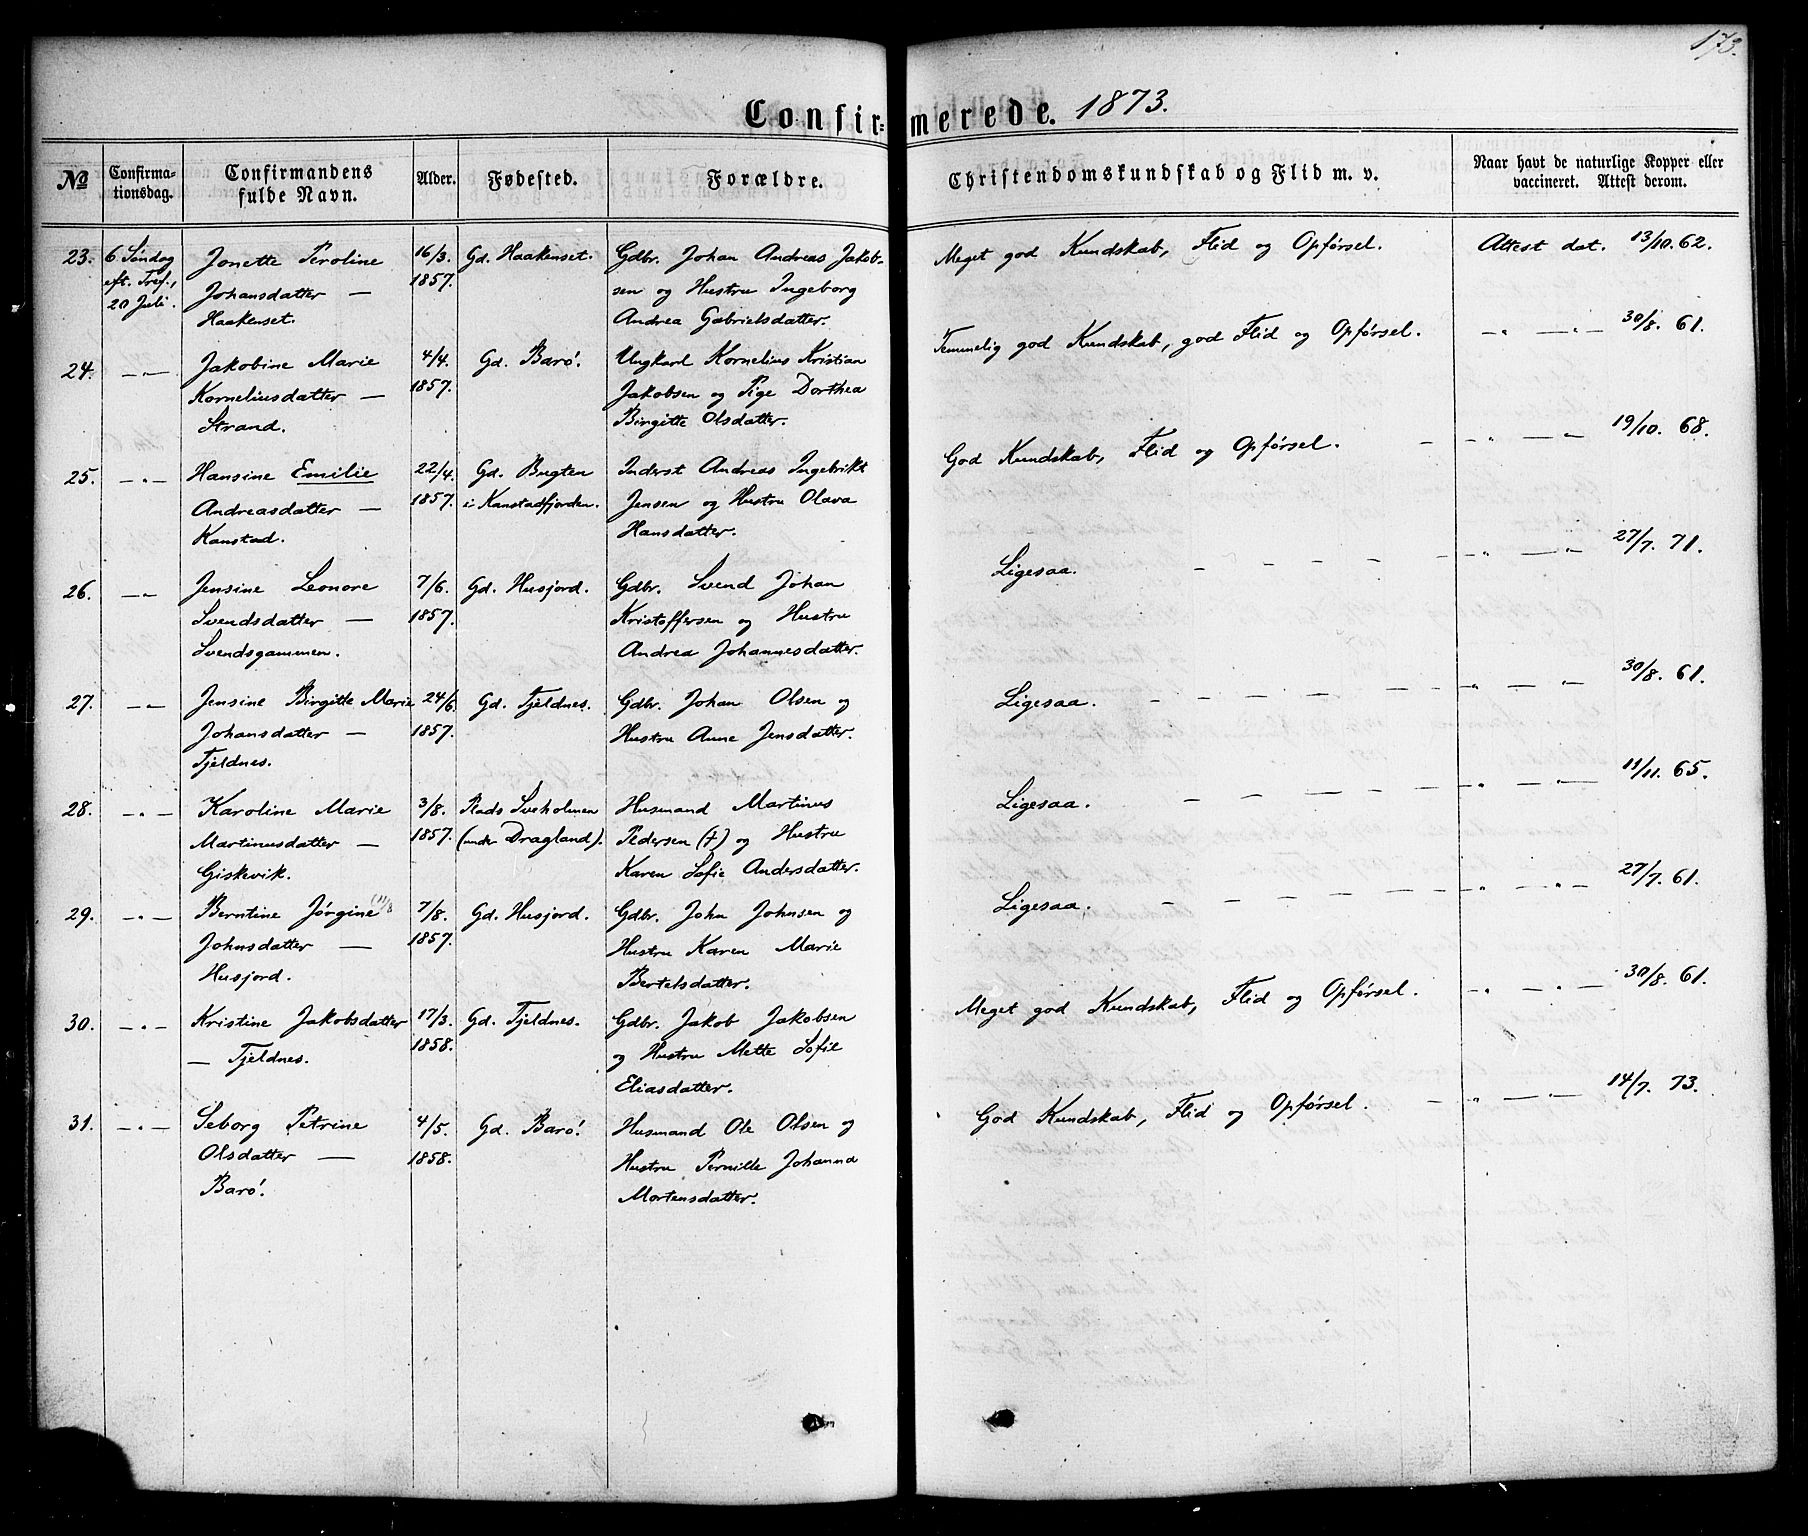 173.
Confir=merede. 1873.
No
Confirma-
tionsdag.
Confirmandens
fulde Navn.
Alder.
Fødested.
Forældre.
Christendomskundskab og Flid m. v.
Naar havt de naturlige Kopper eller
vaccineret. Attest derom.
23. 6 Søndag Jonette Peroline 16/3. Gd. Haakenset. Gdbr. Johan Andreas Jakob- Meget god Kundskab, Flid og Opførsel. Attest dat. 13/10. 62.
eft. Tref., Johansdatter — 1857. sen og Hustru Ingeborg
20 Juli. Haakenset. Andrea Gabrielsdatter.
24. —"— Jakobine Marie 4/4. Gd. Barø. Ungkarl Kornelius Kristian Temmelig god Kundskab, god Flid og Opførsel. —"— —"— 30/8. 61.
Korneliusdatter — 1857. Jakobsen og Pige Dorthea
Strand. Birgitte Olsdatter.
25. —"— Hansine Emilie 22/4. Gd. Bugten Inderst Andreas Ingebrikt God Kundskab, Flid og Opførsel. — —"— —"— 19/10. 68.
Andreasdatter — 1857. i Kanstadfjorden. Jensen og Hustru Olava
Kanstad. Hansdatter.
26. —"— Jensine Leonore 7/6. Gd. Husjord. Gdbr. Svend Johan Ligesaa. — — — — —"— —"— 27/7. 71.
Svendsdatter — 1857. Kristoffersen og Hustru
Svendsgammen. Andrea Johannesdatter.
27. —"— Jensine Birgitte Marie 24/6. Gd. Tjeldnes. Gdbr. Johan Olsen og Ligesaa. — — — — —"— —"— 30/8. 61.
Johansdatter — 1857. Hustru Anne Jensdatter.
Tjeldnes.
28. —"— Karoline Marie 3/8. Pads Sveholmen Husmand Martinus Ligesaa. — — — — —"— —"— 11/11. 65.
Martinusdatter — 1857. (under Dragland). Pedersen (†) og Hustru
Giskevik. Karen Sofie Andersdatter.
29. —"— Berntine Jørgine 7/8. Gd. Husjord. Gdbr. John Johnsen og Ligesaa. — — — — —"— —"— 27/7. 61.
Johnsdatter — 1857. Hustru Karen Marie
Husjord. Bertelsdatter.
30. —"— Kristine Jakobsdatter 17/3. Gd. Tjeldnes. Gdbr. Jakob Jakobsen Meget god Kundskab, Flid og Opførsel. —"— —"— 30/8. 61.
— Tjeldnes. 1858. og Hustru Mette Sofie
Eliasdatter.
31. —"— Seborg Petrine 4/5. Gd. Barø. Husmand Ole Olsen og God Kundskab, Flid og Opførsel. — —"— —"— 14/7. 73.
Olsdatter — 1858. Hustru Pernille Johanna
Barø. Mortensdatter.